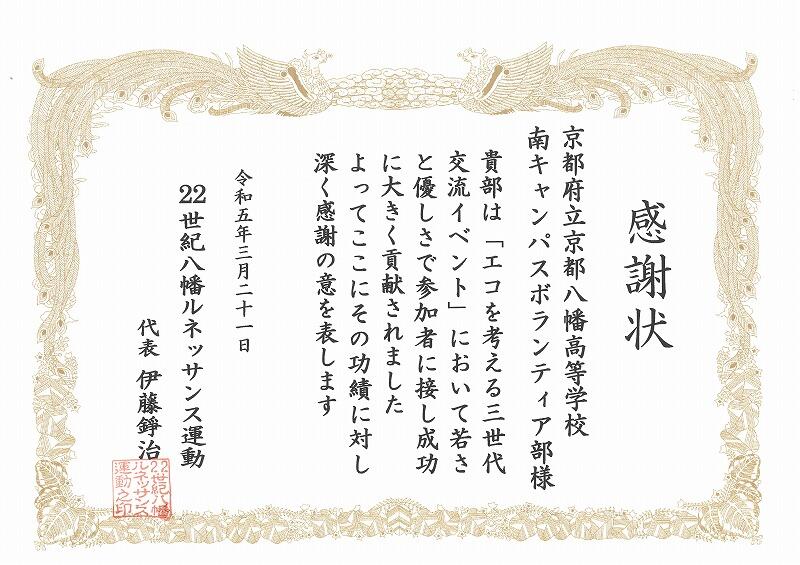 感謝状
京都府立京都八幡高等学校
南キャンパスボランティア部様
貴部は「エコを考える三世代
交流イベント」において若さ
と優しさで参加者に接し成功
に大きく貢献されました
よってここにその功績に対し
深く感謝の意を表します
令和五年三月二十一日
22世紀八幡ルネッサンス運動
代表 伊藤錚治
22世紀八幡
ルネッサンス
運動之印